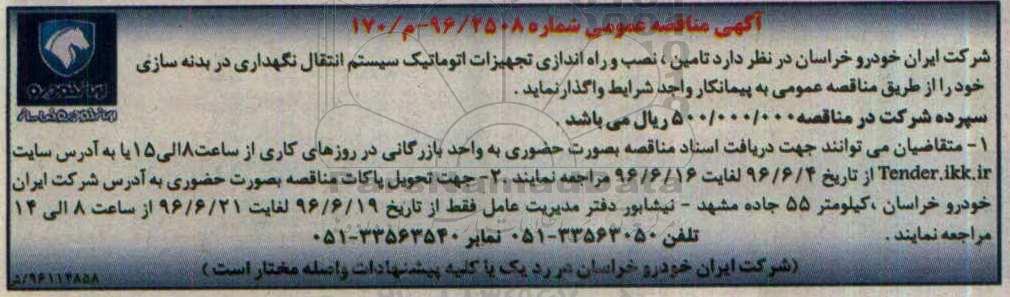 آگهی مناقصه عمومی شماره ۹۶/۲۵۰۸-م/۱۷۰
شرکت ایران خودرو خراسان در نظر دارد تامین ، نصب و راه اندازی تجهیزات اتوماتیک سیستم انتقال نگهداری در بدنه سازی
خود را از طریق مناقصه عمومی به پیمانکار واجد شرایط واگذار نماید .
سپرده شرکت در مناقصه ۵۰۰/۰۰۰/۰۰۰ ریال می باشد .
۱- متقاضیان می توانند جهت دریافت اسناد مناقصه بصورت حضوری به واحد بازرگانی در روزهای کاری از ساعت ۸ الی ۱۵ یا به آدرس سایت
Tender.ikk.ir از تاریخ ۹۶/۶/۴ لغایت ۹۶/۶/۱۶ مراجعه نمایند .۲- جهت تحویل پاکات مناقصه بصورت حضوری به آدرس شرکت ایران
خودرو خراسان ،کیلومتر ۵۵ جاده مشهد - نیشابور دفتر مدیریت عامل فقط از تاریخ ۹۶/۶/۱۹ لغایت ۹۶/۶/۲۱ از ساعت ۸ الی ۱۴
مراجعه نمایند . تلفن ۳۳۵۶۳۰۵۰-۰۵۱ نمابر ۳۳۵۶۳۵۴۰-۰۵۱
(شرکت ایران خودرو خراسان در رد یک یا کلیه پیشنهادات واصله مختار است )
ایران خودرو
ایران خودرو خراسان
۹۶۱۱۴۸۵۸/ف
ParsNamadData